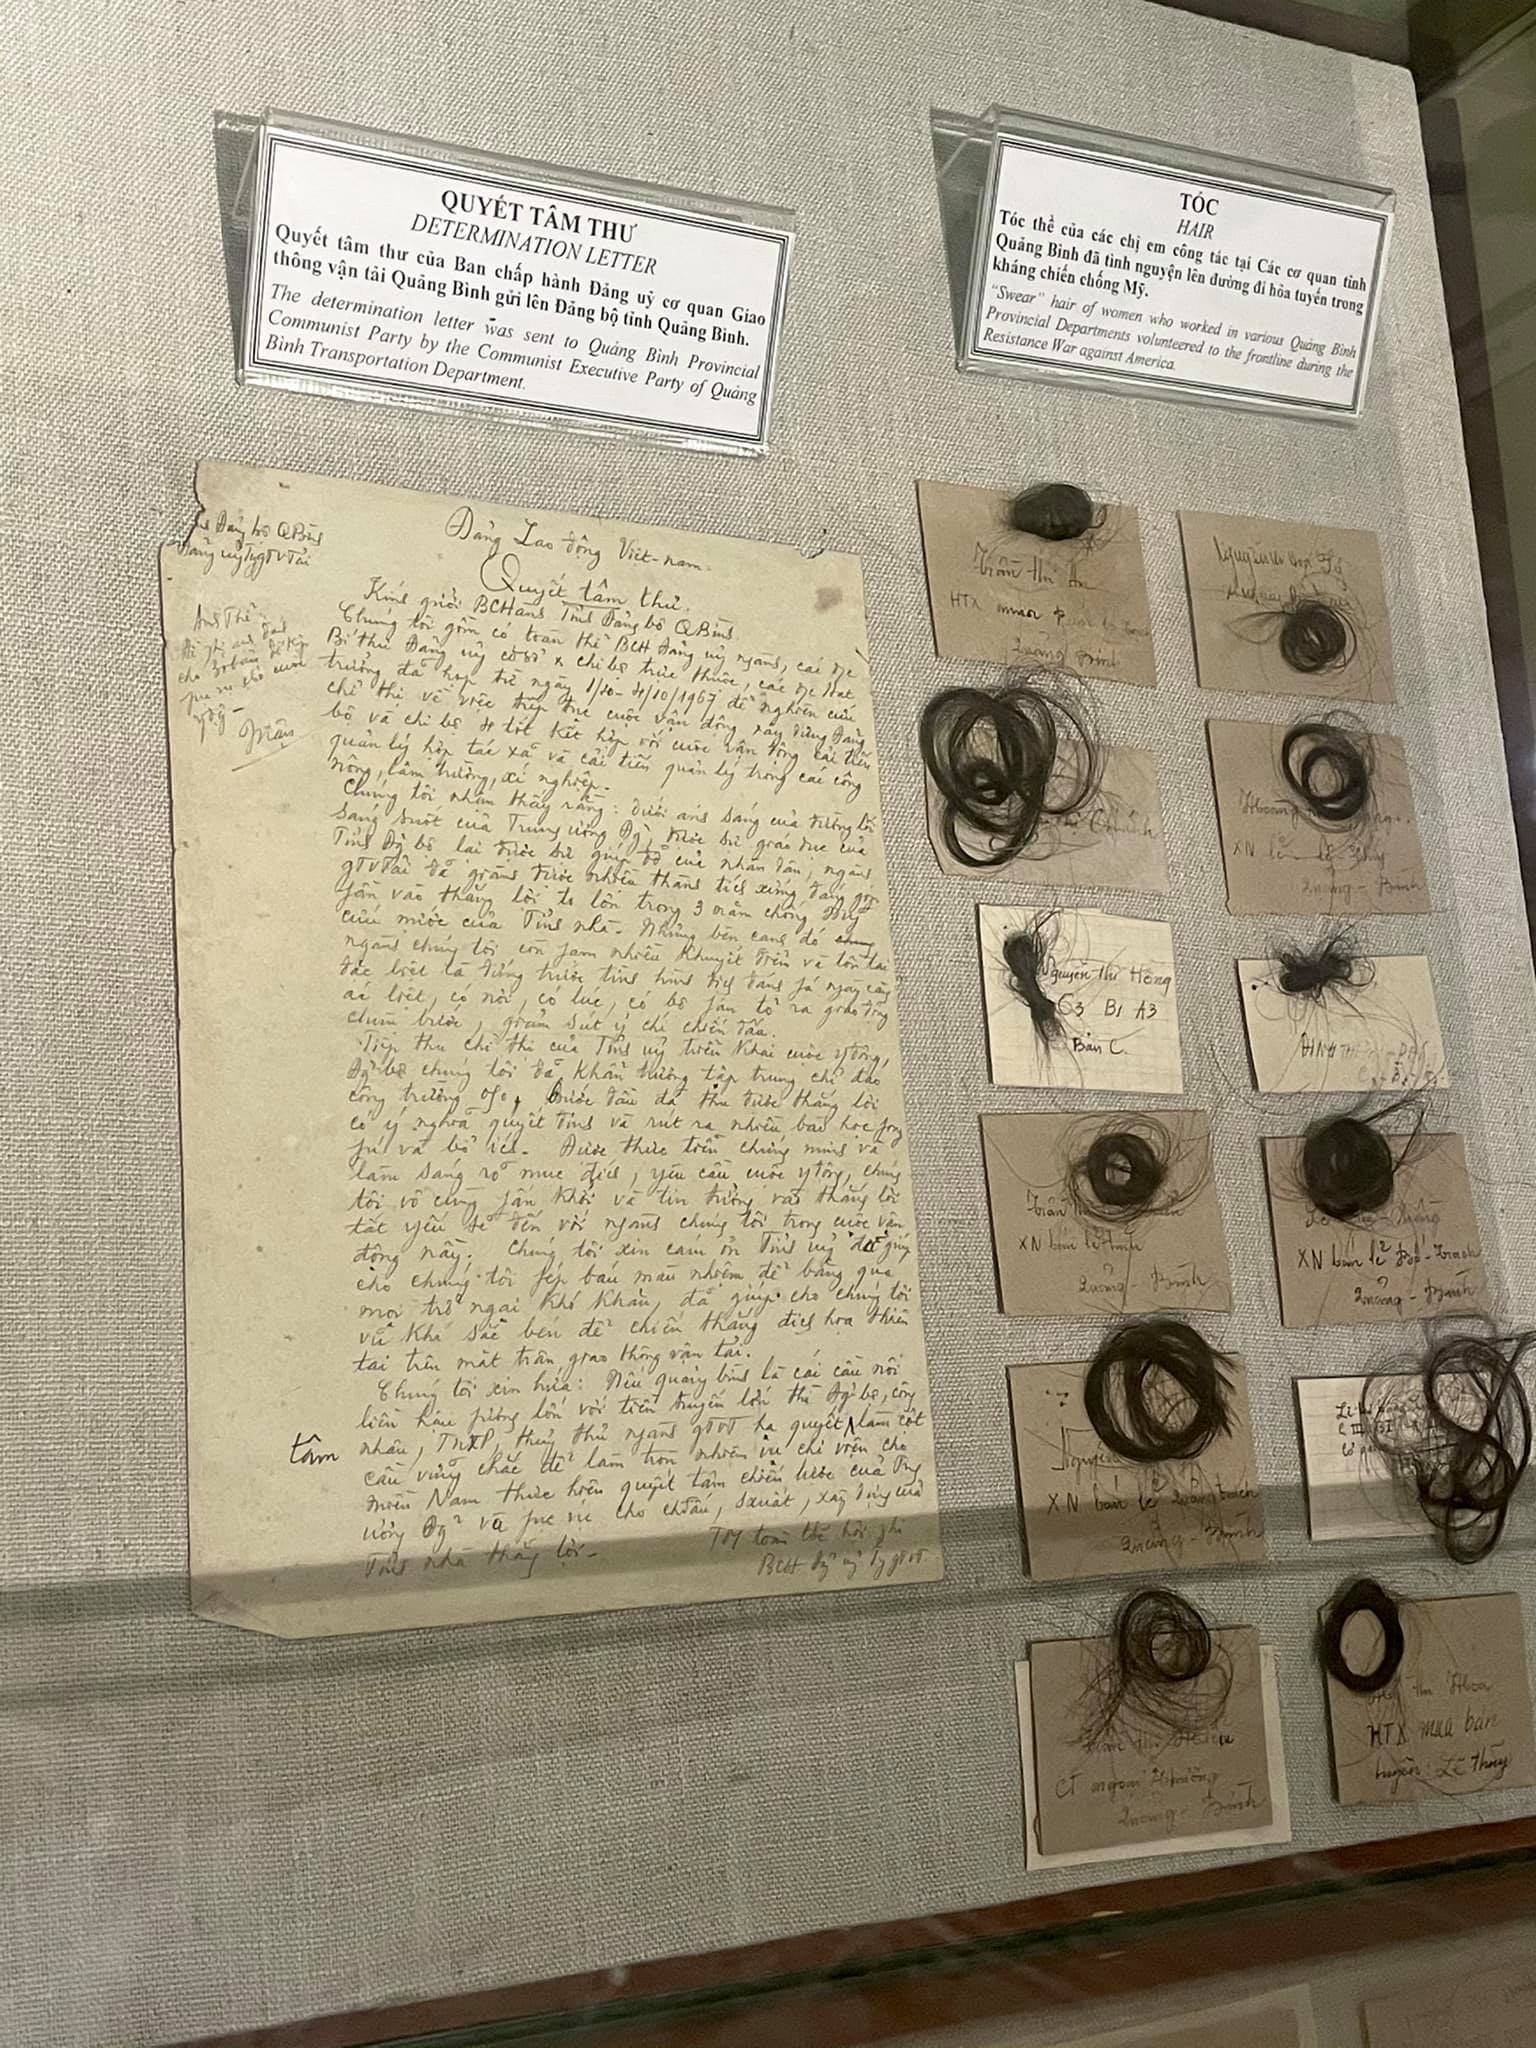 QUYẾT TÂM THƯ
DETERMINATION LETTER
Quyết tâm thư của Ban chấp hành Đảng uỷ cơ quan Giao
thông vận tải Quảng Bình gửi lên Đảng bộ tỉnh Quảng Bình.
The determination letter was sent to Quảng Bình Provincial
Communist Party by the Communist Executive Party of Quảng
Bình Transportation Department.
TÓC
HAIR
Tóc thề của các chị em công tác tại Các cơ quan tỉnh
Quảng Bình đã tình nguyện lên đường đi hỏa tuyến trong
kháng chiến chống Mỹ.
"Swear" hair of women who worked in various Quảng Bình
Provincial Departments volunteered to the frontline during the
Resistance War against America.
Đảng bộ QBình
Đảng Lao động Việt-nam
Quyết tâm thư
Kính gửi BCHành Tỉnh Đảng bộ QBình
Chúng tôi gồm có toàn thể BCH Đảng uỷ ngành, các
Bí thư Đảng uỷ cơ sở chi bộ trực thuộc, các
trưởng đã họp từ ngày 1/10 - 4/10/1967 để nghiên cứu
chỉ thị về việc tiếp tục cuộc vận động xây dựng Đảng
bộ và chi bộ 4 tốt kết hợp với cuộc vận động cải tiến
quản lý hợp tác xã và cải tiến quản lý trong các công
nông, lâm trường, xí nghiệp.
Chúng tôi nhận thấy rằng: dưới ánh sáng của đường lối
sáng suốt của Trung ương Đg, được sự giáo dục của
Tỉnh Đg bộ lại được sự giúp đỡ của nhân dân, ngành
gtvtải đã giành được nhiều thành tích xứng đáng góp
fần vào thắng lợi to lớn trong 3 năm chống Mỹ
cứu nước của Tỉnh nhà. Nhưng bên cạnh đó
ngành chúng tôi còn fạm nhiều khuyết điểm và tồn tại
đặc biệt là đứng trước tình hình địch đánh fá ngày càng
ác liệt, có nơi, có lúc, có bộ fận tỏ ra giao động
chùn bước, giảm sút ý chí chiến đấu.
Tiếp thu chỉ thị của Tỉnh uỷ triển khai cuộc vđộng,
Đg bộ chúng tôi đã khẩn trương tập trung chỉ đạo
công trường Bước đầu đã thu được thắng lợi
có ý nghĩa quyết định và rút ra nhiều bài học fong
fú và bổ ích. Được thực tiễn chứng minh và
làm sáng rõ mục đích, yêu cầu cuộc vđộng, chúng
tôi vô cùng fấn khởi và tin tưởng vào thắng lợi
tất yếu sẽ đến với ngành chúng tôi trong cuộc vận
động này. Chúng tôi xin cám ơn Tỉnh uỷ đã giúp
cho chúng tôi fép báu màu nhiệm để băng qua
mọi trở ngại khó khăn, đã giúp cho chúng tôi
vũ khí sắc bén để chiến thắng địch họa thiên
tai trên mặt trận giao thông vận tải.
Chúng tôi xin hứa: Nếu quảng bình là cái cầu nối
liền hậu fương lớn với tiền tuyến lớn thì Đg bộ, công
nhân, TNXP, thuỷ thủ ngành gtvt hạ quyết tâm làm cột
cầu vững chắc để làm tròn nhiệm vụ chi viện cho
miền Nam thực hiện quyết tâm chiến lược của Tng
ương Đg và fục vụ cho chđấu, sxuất, xây dựng của
Tỉnh nhà thắng lợi.
TM toàn thể hội nghị
BCH Đg uỷ ty gtvt
Trần thị An
HTX
Quảng Bình
Hoàng
XN
Quảng - Bình
Nguyễn thị Hồng
C3 B1 A3
Bản C.
Trần
XN bán lẻ
Quảng - Bình
Lê
XN bán lẻ Bố-Trạch
Quảng - Bình
Nguyễn
XN bán lẻ Quảng trạch
Quảng - Bình
CT ngoại thương
Quảng - Bình
thị Hoa
HTX mua bán
huyện Lệ Thủy